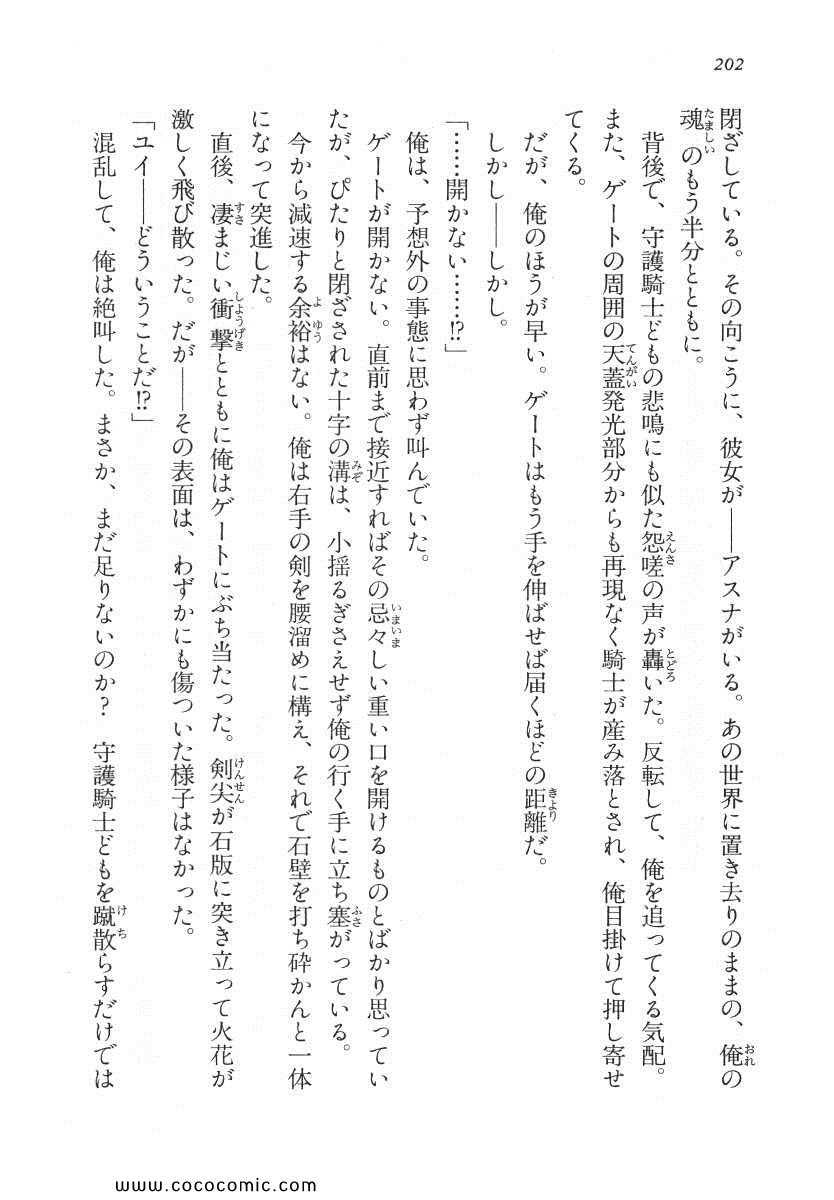 202
閉ざしている。その向こうに、彼女が――アスナがいる。あの世界に置き去りのままの、俺の
魂のもう半分とともに。
背後で、守護騎士どもの悲鳴にも似た怨嗟の声が轟いた。反転して、俺を追ってくる気配。
また、ゲートの周囲の天蓋発光部分からも再現なく騎士が産み落とされ、俺目掛けて押し寄せ
てくる。
だが、俺のほうが早い。ゲートはもう手を伸ばせば届くほどの距離だ。
しかし――しかし。
「……開かない……!?」
俺は、予想外の事態に思わず叫んでいた。
ゲートが開かない。直前まで接近すればその忌々しい重い口を開けるものとばかり思ってい
たが、ぴたりと閉ざされた十字の溝は、小揺るぎさえせず俺の行く手に立ち塞がっている。
今から減速する余裕はない。俺は右手の剣を腰溜めに構え、それで石壁を打ち砕かんと一体
になって突進した。
直後、凄まじい衝撃とともに俺はゲートにぶち当たった。剣尖が石版に突き立って火花が
激しく飛び散った。だが――その表面は、わずかにも傷ついた様子はなかった。
「ユイ――どういうことだ!?」
混乱して、俺は絶叫した。まさか、まだ足りないのか？　守護騎士どもを蹴散らすだけでは
www.cococomic.com